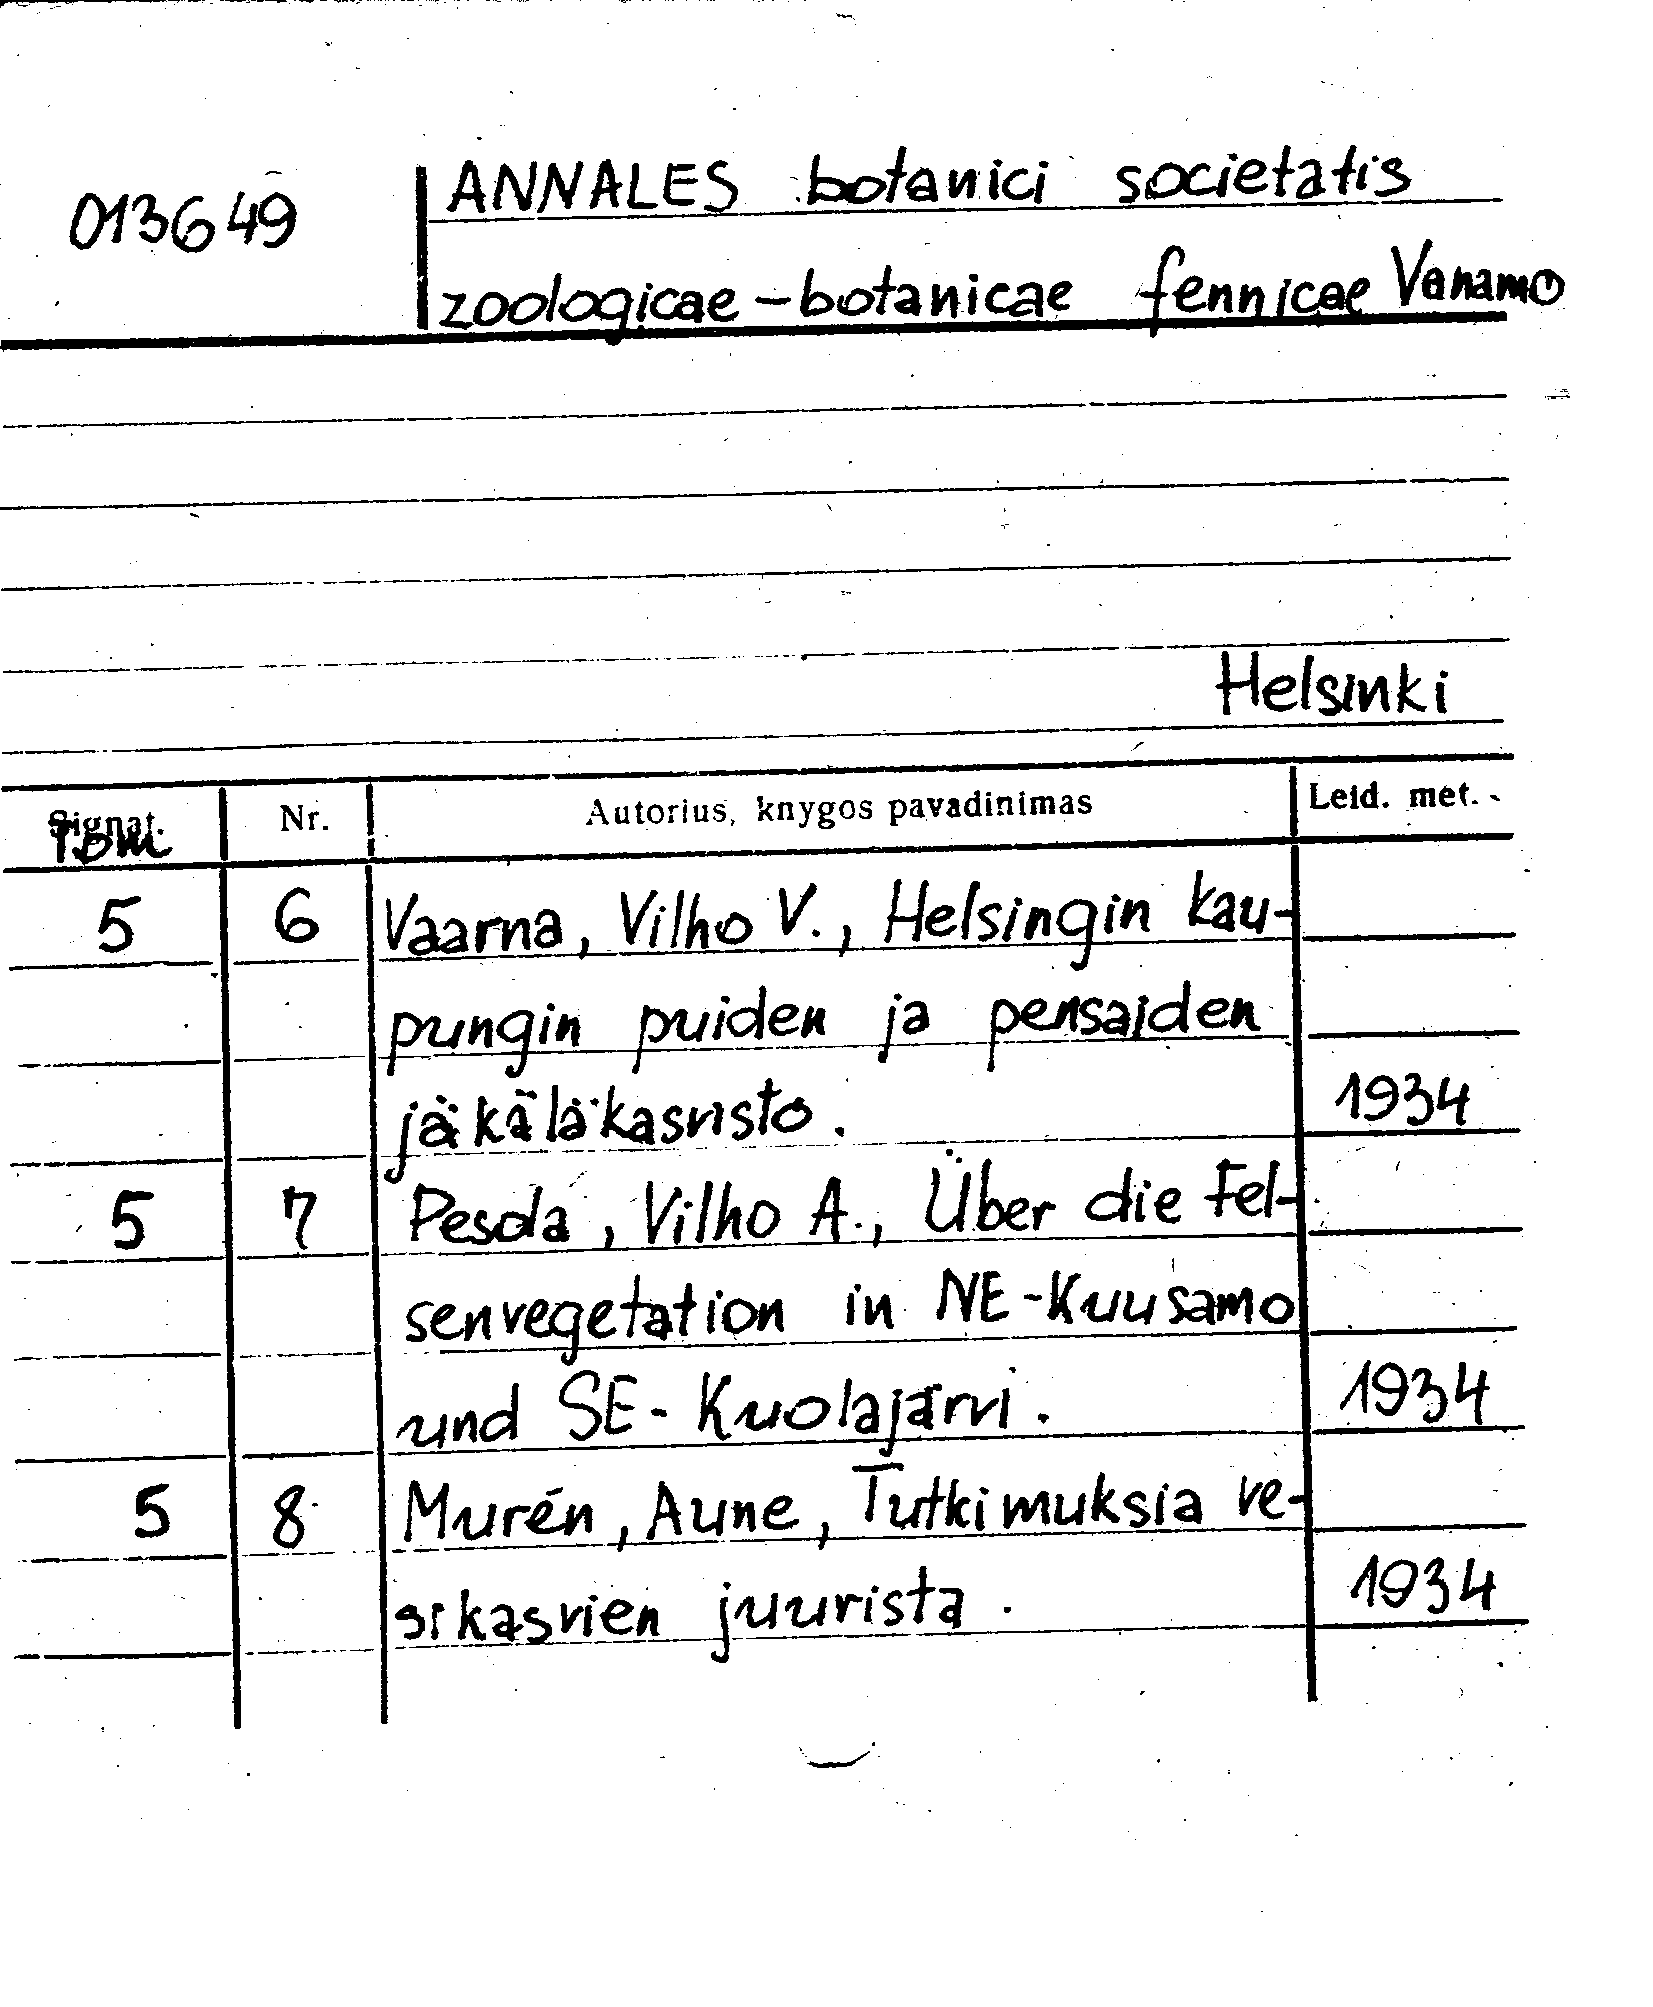 013649 ANNALES botanici societatis
zoologicae-botanicae fennicae Vanamo
Helsinki
Signat. Nr. Autorius, knygos pavadinimas Leid. met.
Tom
5 6 Vaarna, Vilho V., Helsingin kau-
pungin puiden ja pensaiden
jäkäläkasvisto. 1934
5 7 Pesola, Vilho A., Über die Fel-
senvegetation in NE-Kuusamo
und SE-Kuolajärvi. 1934
5 8 Murén, Aune, Tutkimuksia ve-
sikasvien juurista. 1934